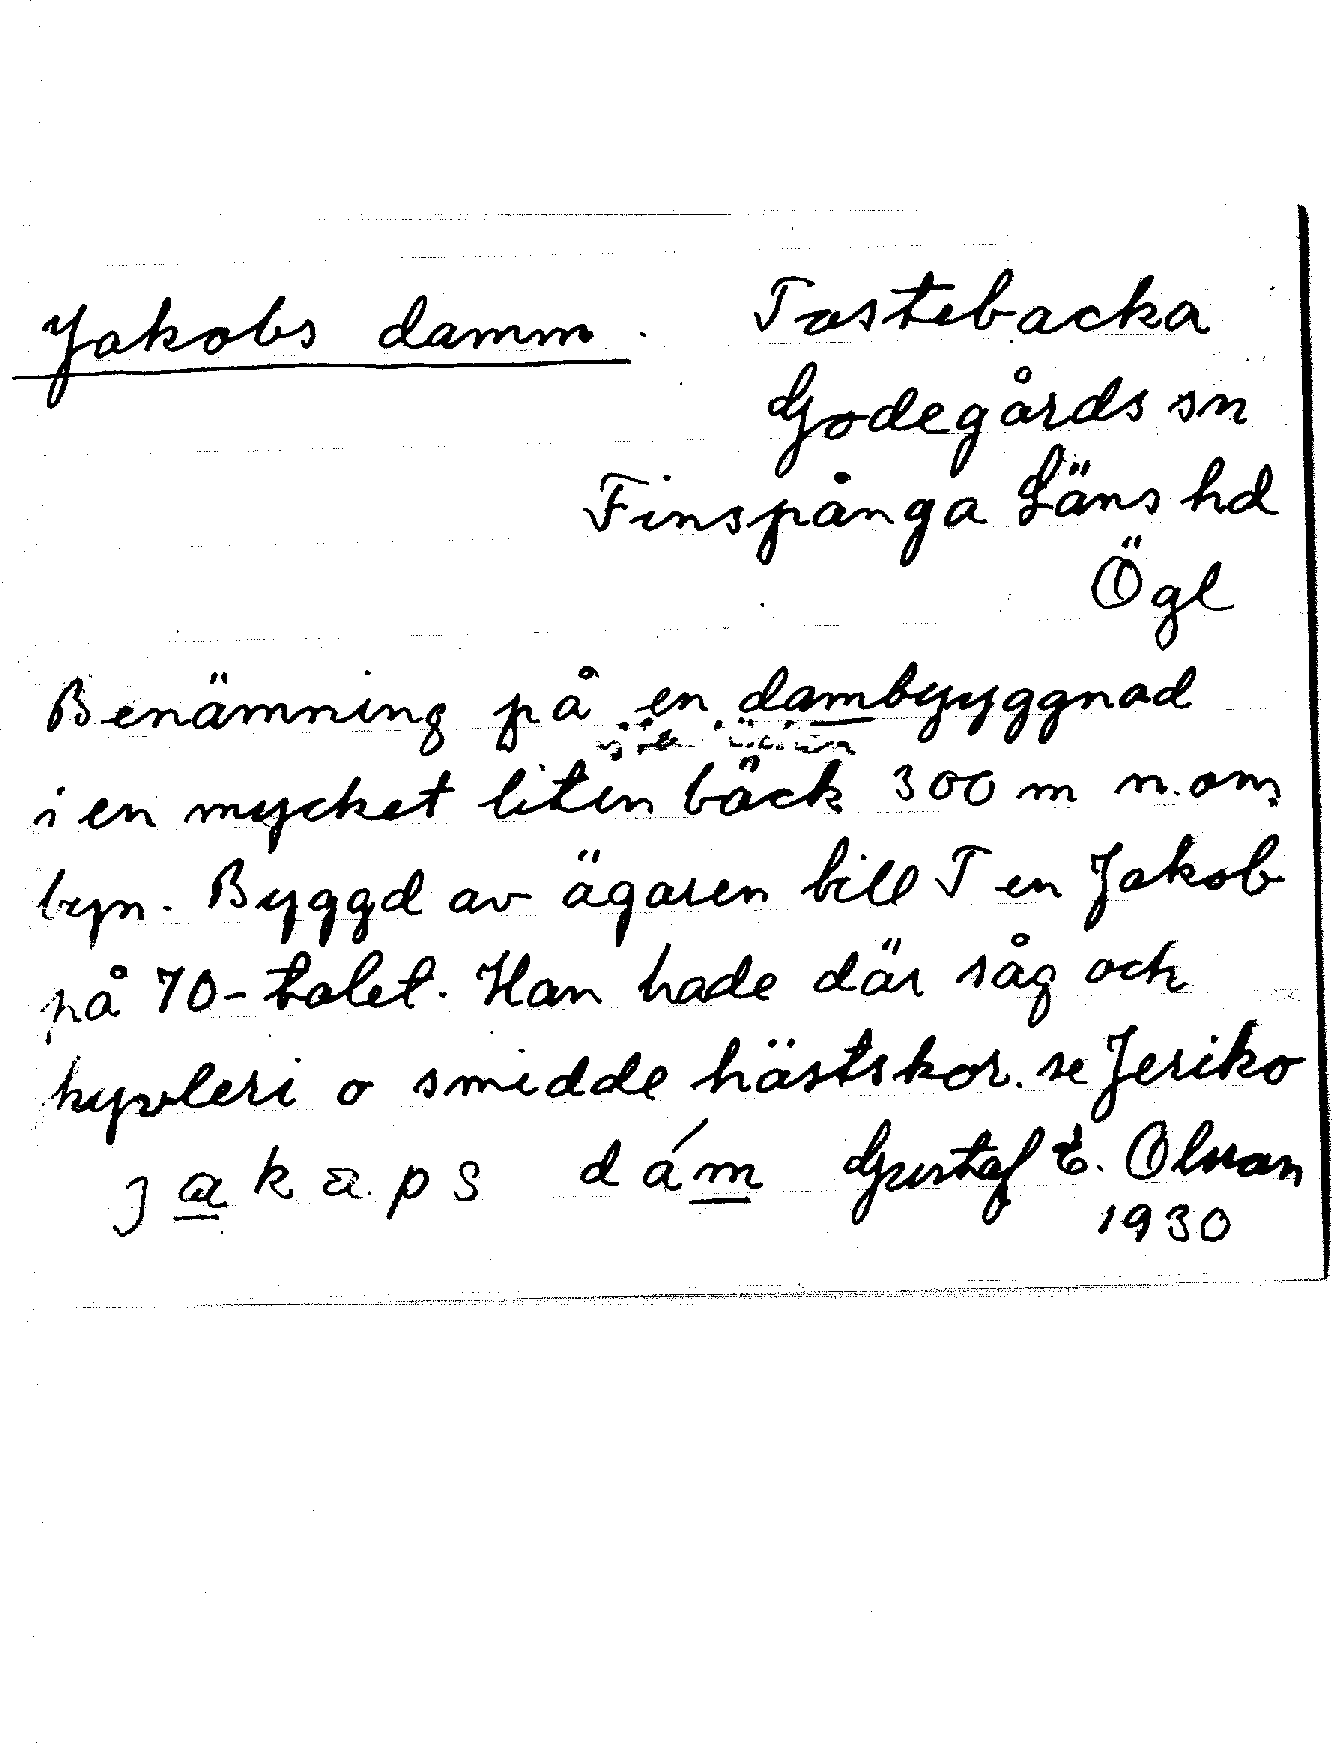 Jakobs damm. Tostebacka
Godegårds sn
Finspånga Läns hd
Ögl
Benämning på en dambyyggnad
i en mycket liten bäck 300 m n. om
byn. Byggd av ägaren till T en Jakob
på 70-talet. Han hade där såg och
hyvleri o smidde hästskor. se Jeriko
jakaps dám Gustaf E. Olsson
1930